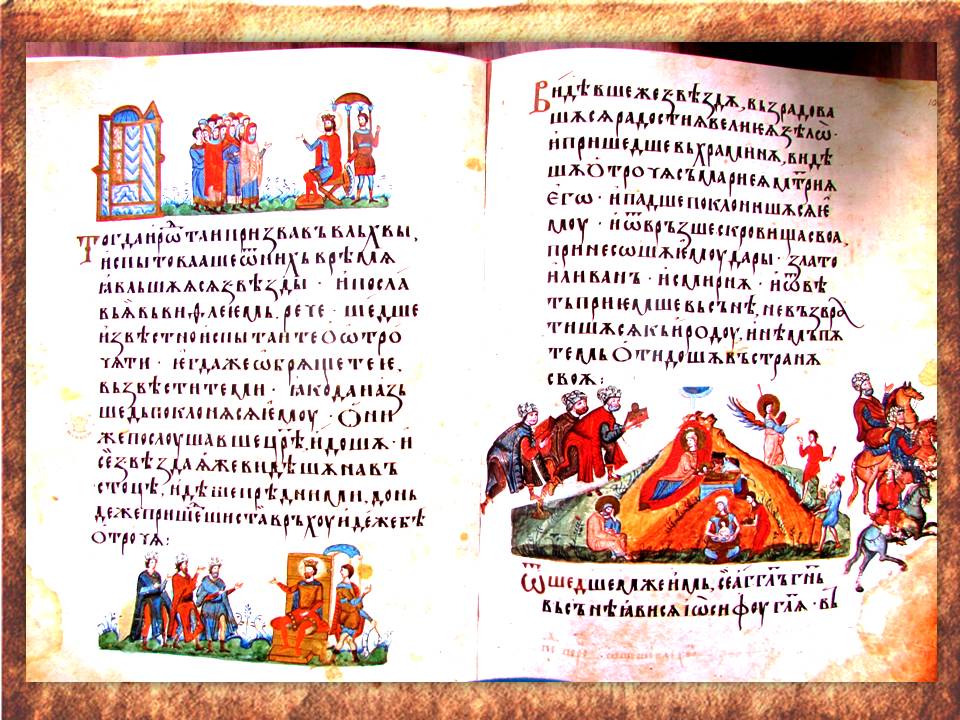 Тогда иро҃ таи призвавъ влъхвы,
испытовааше ѿ нихъ врѣмѧ
ꙗвльшѧѧсѧ ѕвѣзды · и посла
въ виѳлеемь, рече · шедше
извѣстно испытаите о ѡтро
чѧти · егдаже ѡбрѧщете е,
възвѣстите ми · ꙗко да и азь
шедь поклонѧсѧ емоу · Ѻни
же послоушавше цр҃ѣ, идошѧ · и
се ѕвѣзда ѫже видѣшѧ на въ
стоцѣ, идѣше прѣд ними, донь
деже пришеⷣши ста врьхоу идеже бѣ
отрочѧ :
Видѣвшеже ѕвѣздѫ, възрадова
шѧсѧ радостиѫ велиеѫ ѕѣлѡ ·
и пришедше въ храминѫ, видѣ
шѧ отрочѧ съ мариеѫ мт҃риѫ
его · и падше поклонишѧсѧ е
моу · и ѿвръзше скровища своа,
принесошѧ емоу дары · злато
и ливанъ · и смирнѫ · и ѿвѣ
ть приемше въ сънѣ, не възвра
титисѧ къ иродоу, инѣмь пѫ
темь отидошѧ въ странѫ
своѫ :
Ѿшедшемже имь, се агг҃ль гн҃ь
въ сънѣ ꙗвисѧ иѡсифоу гл҃ѧ · въ